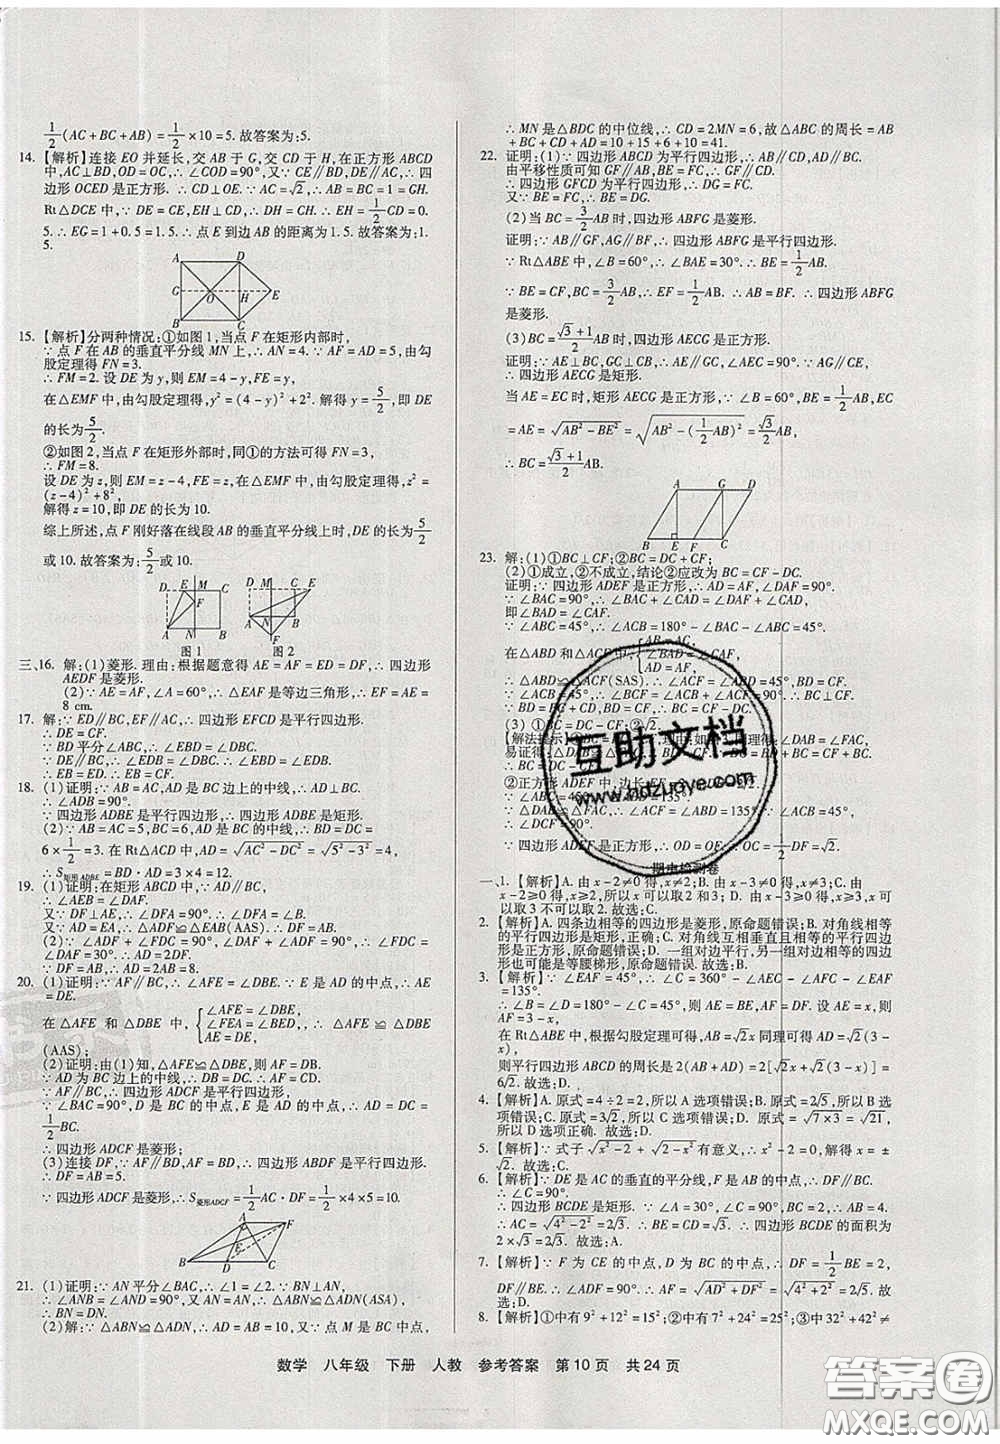 1/2(AC+BC+AB)=1/2×10=5.故答案为:5.
14.【解析】连接 EO 并延长,交 AB 于 G,交 CD 于 H,在正方形 ABCD
中,AC⊥BD,OD=OC,∴∠COD=90°.∵CE∥BD,DE∥AC,∴四
边形 OCED 是正方形.∴CD⊥OE.∵AC=√2,∴AB=BC=1=GH.
Rt△DCE 中,∵DE=CE,EH⊥CD,∴DH=CH,∴EH=1/2CD=0.
5.∴EG=1+0.5=1.5.∴点 E 到边 AB 的距离为 1.5.故答案为:1.
5.
A D
G O H E
B C
15.【解析】分两种情况:①如图 1,当点 F 在矩形内部时,
∵点 F 在 AB 的垂直平分线 MN 上,∴AN=4.∵AF=AD=5,由勾
股定理得 FN=3.
∴FM=2.设 DE 为 y,则 EM=4-y,FE=y,
在△EMF 中,由勾股定理得,y²=(4-y)²+2².解得 y=5/2,即 DE
的长为5/2.
②如图 2,当点 F 在矩形外部时,同①的方法可得 FN=3,
∴FM=8.
设 DE 为 z,则 EM=z-4,FE=z,在△EMF 中,由勾股定理得,z²
=(z-4)²+8²,
解得 z=10,即 DE 的长为 10.
综上所述,点 F 刚好落在线段 AB 的垂直平分线上时,DE 的长为5/2
或 10.故答案为:5/2或 10.
D E M C
F
A N B
图 1
D C M E
A N B
F
图 2
三、16. 解:(1)菱形.理由:根据题意得 AE=AF=ED=DF,∴四边形
AEDF 是菱形.
(2)∵AE=AF,∠A=60°,∴△EAF 是等边三角形,∴EF=AE=
8 cm.
17. 解:∵ED∥BC,EF∥AC,∴四边形 EFCD 是平行四边形.
∴DE=CF.
∵BD 平分∠ABC,∴∠EBD=∠DBC.
∵DE∥BC,∴∠EDB=∠DBC.∴∠EBD=∠EDB.
∴EB=ED.∴EB=CF.
18. (1)证明:∵AB=AC,AD 是 BC 边上的中线,∴AD⊥BC.
∴∠ADB=90°.
∵四边形 ADBE 是平行四边形,∴四边形 ADBE 是矩形.
(2)∵AB=AC=5,BC=6,AD 是 BC 的中线,∴BD=DC=
6×1/2=3.在 Rt△ACD 中,AD=√(AC²-DC²)=√(5²-3²)=4.
∴S矩形ADBE=BD·AD=3×4=12.
19. (1)证明:在矩形 ABCD 中,∵AD∥BC,
∴∠AEB=∠DAF.
又∵DF⊥AE,∴∠DFA=90°.∴∠DFA=∠B.
又∵AD=EA,∴△ADF≌△EAB(AAS).∴DF=AB.
(2)∵∠ADF+∠FDC=90°,∠DAF+∠ADF=90°,∴∠FDC=
∠DAF=30°.
又∵DF=AB,∴AD=2AB=8.
20. (1)证明:∵AF∥BC,∴∠AFE=∠DBE.∵E 是 AD 的中点,∴AE
=DE.
在△AFE 和△DBE 中,{∠AFE=∠DBE, ∠FEA=∠BED, AE=DE, ∴△AFE≌△DBE
(AAS);
(2)证明:由(1)知,△AFE≌△DBE,则 AF=DB.
∵AD 为 BC 边上的中线,∴DB=DC.∴AF=CD.
∵AF∥BC,∴四边形 ADCF 是平行四边形,
∵∠BAC=90°,D 是 BC 的中点,E 是 AD 的中点,∴AD=DC=
1/2BC.
∴四边形 ADCF 是菱形;
(3)连接 DF,∵AF∥BD,AF=BD,∴四边形 ABDF 是平行四边形.
∴DF=AB=5.
∵四边形 ADCF 是菱形,∴S菱形ADCF=1/2AC·DF=1/2×4×5=10.
A F
E
B D C
21. (1)证明:∵AN 平分∠BAC,∴∠1=∠2.∵BN⊥AN,
∴∠ANB=∠AND=90°,又 AN=AN,∴△ABN≌△ADN(ASA),
∴BN=DN.
(2)解:∵△ABN≌△ADN,∴AD=AB=10.∵点 M 是 BC 中点,
∴MN 是△BDC 的中位线,∴CD=2MN=6,故△ABC 的周长=AB
+BC+CD+AD=10+15+6+10=41.
22. 证明:(1)∵四边形 ABCD 为平行四边形,∴AD∥BC.
由平移性质可知 GF∥AB,BE=FC,∴GF∥CD.
∴四边形 GFCD 为平行四边形,∴DG=FC.
又∵BE=FC,∴BE=DG.
(2)当 BC=3/2AB 时,四边形 ABFG 是菱形.
证明:∵AB∥GF,AG∥BF,∴四边形 ABFG 是平行四边形.
∵Rt△ABE 中,∠B=60°,∴∠BAE=30°.∴BE=1/2AB.
∵BE=CF,BC=3/2AB,∴EF=1/2AB.∴AB=BF.∴四边形 ABFG
是菱形.
(3)BC=(√3+1)/2AB.
证明:∵AE⊥BC,GC⊥CB,∴AE∥GC,∠AEC=90°.∵AG∥CE,
∴四边形 AECG 是矩形.
当 AE=EC 时,矩形 AECG 是正方形,∵∠B=60°,BE=1/2AB,EC
=AE=√(AB²-BE²)=√(AB²-(1/2AB)²)=√3/2AB,
∴BC=(√3+1)/2AB.
A G D
B E F C
23. 解:(1)①BC⊥CF;②BC=DC+CF;
(2)①成立,②不成立,结论②应改为 BC=CF-DC.
证明:∵四边形 ADEF 是正方形,∴AD=AF,∠DAF=90°.
∵∠BAC=90°,∴∠BAC+∠CAD=∠DAF+∠CAD,
即∠BAD=∠CAF.
∵∠ABC=45°,∴∠ACB=180°-∠BAC-∠ABC=45°.
在△ABD 和△ACF 中,
AD=AF,
∴△ABD≌△ACF(SAS).
∵∠ACB=45°,
∴BD=BC+CD,∴BC+CD=CF.
期末检测卷
一、1.【解析】A.由 x-2≠0 得,x≠2;B.由 x-3≠0 得,x≠3;C.由
x-2≥0 得 x≥2,所以 x 可以取 2 和 3;D.由 x-3≥0 得 x≥3,x 不
可以取 2.故选:C.
2.【解析】A.四条边相等的四边形是菱形,原命题错误;B.对角线相等
的平行四边形是矩形,正确;C.对角线互相垂直且相等的平行四边
形是正方形,原命题错误;D.一组对边平行,另一组对边相等的四边
形也可能是等腰梯形,原命题错误.故选:B.
3.【解析】∵∠EAF=45°,∴∠C=360°-∠AEC-∠AFC-∠EAF
=135°.
∴∠B=∠D=180°-∠C=45°,则 AE=BE,AF=DF.设 AE=x,则
AF=3-x,
在 Rt△ABE 中,根据勾股定理可得,AB=√2x 同理可得,AD=√2(3-
x),
则平行四边形 ABCD 的周长是 2(AB+AD)=2[√2x+√2(3-x)]=
6√2.故选:D.
4.【解析】A.原式=4÷2=2,所以 A 选项错误;B.原式=2√5,所以 B
选项错误;C.原式=3√5,所以 C 选项错误;D.原式=√(7×3)=√21,
所以 D 选项正确.故选:D.
5.【解析】∵式子√(x²-2)+√(2-x²)有意义,∴x²-2=0,解得:x=±
√2.故选:C.
6.【解析】∵DE 是 AC 的垂直的平分线,F 是 AB 的中点,∴DF∥BC.
∴四边形 BCDE 是矩形.∵∠A=30°,∠C=90°,BC=2,∴AB=4.
∴AC=√(4²-2²)=2√3.∴DC=√3.∴四边形 BCDE 的面积为
2×√3=2√3.故选:A.
7.【解析】∵F 为 CE 的中点,D 为 BC 的中点,∴DF=1/2BE=2,
DF∥BE.∴∠ADF=∠AOE=90°.∴AF=√(AD²+DF²)=2√5.故
选:D.
8.【解析】①中有 9²+12²=15²;②中有 7²+24²=25²;③中有 32²+42²≠
互助文档
www.hdzuoye.com
答案圈
MXQE.COM
数学 八年级 下册 人教 参考答案 第 10 页 共 24 页